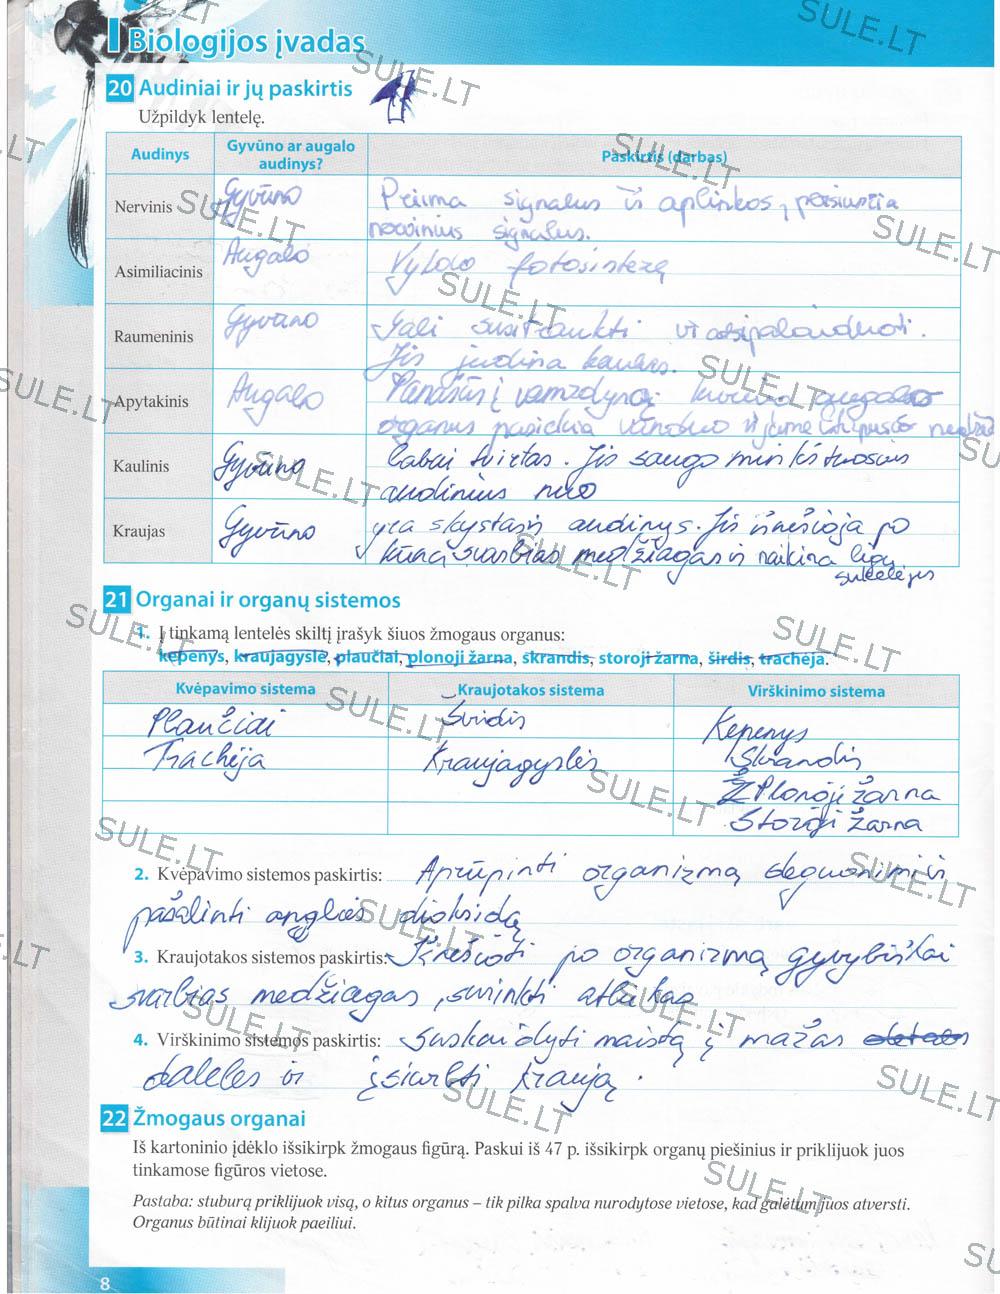 I Biologijos įvadas
20 Audiniai ir jų paskirtis
Užpildyk lentelę.
Audinys Gyvūno ar augalo audinys? Paskirtis (darbas)
Nervinis Gyvūno Priima signalus iš aplinkos, persiunčia
nervinius signalus.
Asimiliacinis Augalo Vykdo fotosintezę
Raumeninis Gyvūno Gali susitraukti ir atsipalaiduoti.
Jis judina kaulus.
Apytakinis Augalo Panašus į vamzdyną, kuriuo augalo
organus pasiekia vanduo ir jame ištirpusios
Kaulinis Gyvūno labai tvirtas. Jis saugo minkštuosius
audinius nuo
Kraujas Gyvūno yra skystasis audinys. Jis išnešioja po
kūną svarbias medžiagas ir naikina ligų
sukelėjus
21 Organai ir organų sistemos
1. Į tinkamą lentelės skiltį įrašyk šiuos žmogaus organus:
kepenys, kraujagyslė, plaučiai, plonoji žarna, skrandis, storoji žarna, širdis, trachėja.
Kvėpavimo sistema Kraujotakos sistema Virškinimo sistema
Plaučiai Širdis Kepenys
Trachėja Kraujagyslės Skrandis
Plonoji žarna
Storoji žarna
2. Kvėpavimo sistemos paskirtis: Aprūpinti organizmą deguonimi ir
pašalinti anglies dioksidą
3. Kraujotakos sistemos paskirtis: Išnešioti po organizmą gyvybiškai
svarbias medžiagas, surinkti atliekas
4. Virškinimo sistemos paskirtis: Suskaidyti maistą į mažas
daleles ir įsiurbti kraują.
22 Žmogaus organai
Iš kartoninio įdėklo išsikirpk žmogaus figūrą. Paskui iš 47 p. išsikirpk organų piešinius ir priklijuok juos
tinkamose figūros vietose.
Pastaba: stuburą priklijuok visą, o kitus organus – tik pilka spalva nurodytose vietose, kad galėtum juos atversti.
Organus būtinai klijuok paeiliui.
8
SULE.LT